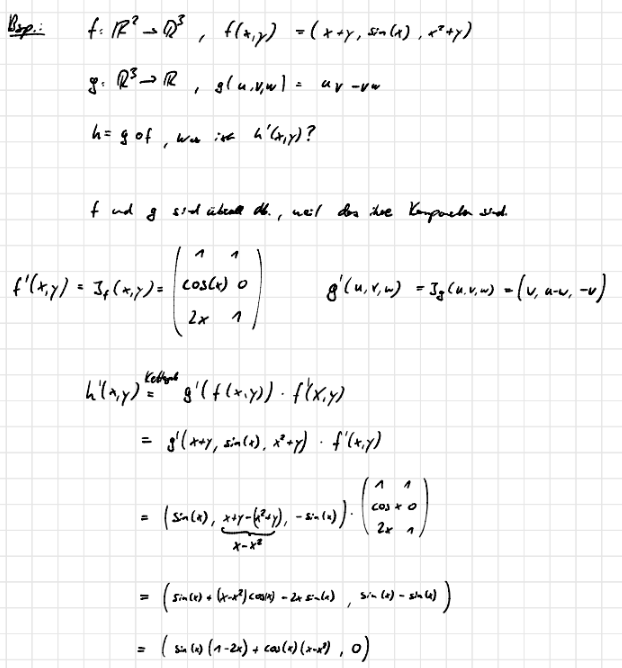 Bsp.: f: ℝ² → ℝ³, f(x,y) = (x+y, sin(x), x²+y)
g: ℝ³ → ℝ, g(u,v,w) = uv - vw
h = g∘f, was ist h'(x,y)?
f und g sind überall db., weil das ihre Komponenten sind.
f'(x,y) = J_f(x,y) = ( 1 1 ; cos(x) 0 ; 2x 1 )    g'(u,v,w) = J_g(u,v,w) = (v, u-w, -v)
h'(x,y) =^{Kettenregel} g'(f(x,y)) · f'(x,y)
= g'(x+y, sin(x), x²+y) · f'(x,y)
= ( sin(x), x+y-(x²+y), -sin(x) ) · ( 1 1 ; cos x 0 ; 2x 1 )
x-x²
= ( sin(x) + (x-x²)cos(x) - 2x sin(x) , sin(x) - sin(x) )
= ( sin(x)(1-2x) + cos(x)(x-x²) , 0 )